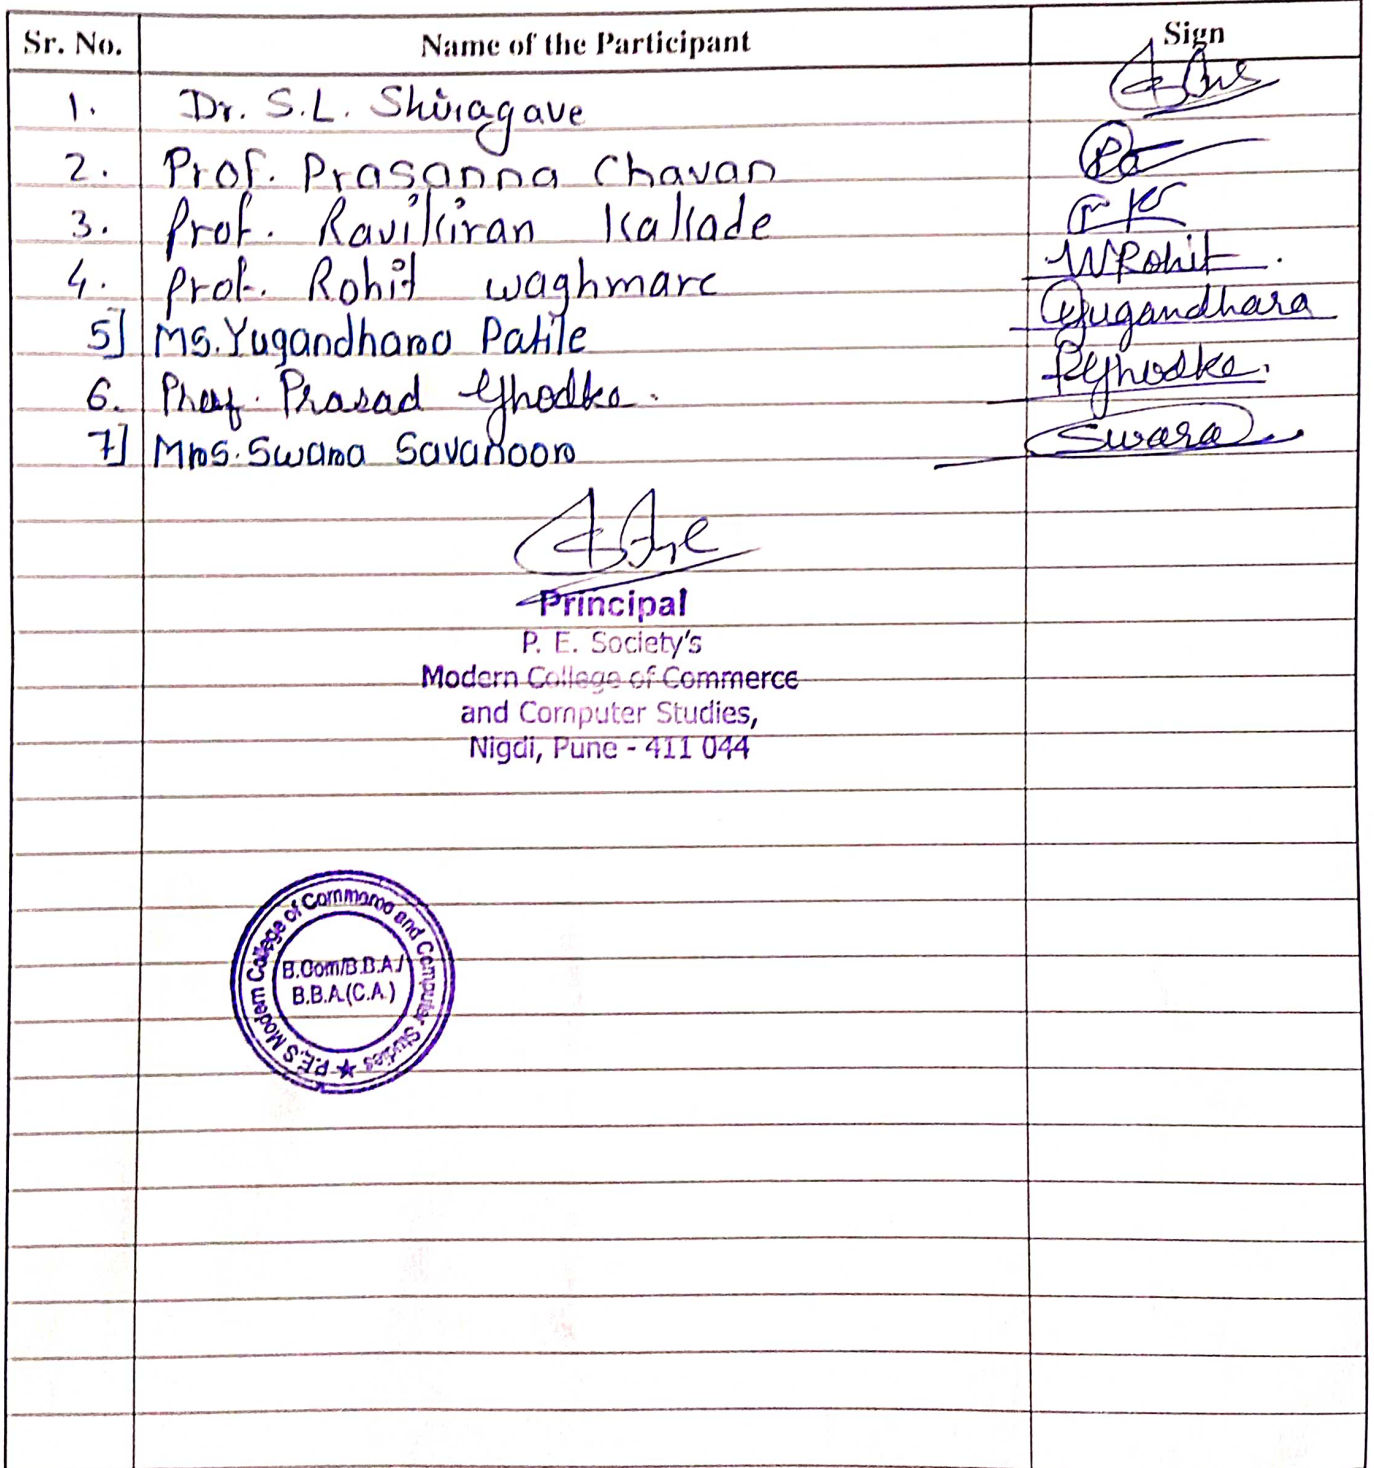 Sr. No. Name of the Participant Sign
1. Dr. S.L. Shiragave
2. Prof. Prasanna Chavan
3. Prof. Ravikiran Kakade
4. Prof. Rohit waghmare WRohit.
5] Ms. Yugandhara Patile Yugandhara
6. Prof. Prasad Ghodke. PGhodke.
7] Mrs. Swara Savanoor Swara
Principal
P. E. Society's
Modern College of Commerce
and Computer Studies,
Nigdi, Pune - 411 044
P.E.S Modern College of Commerce and Computer Studies
B.Com/B.B.A./
B.B.A.(C.A.)